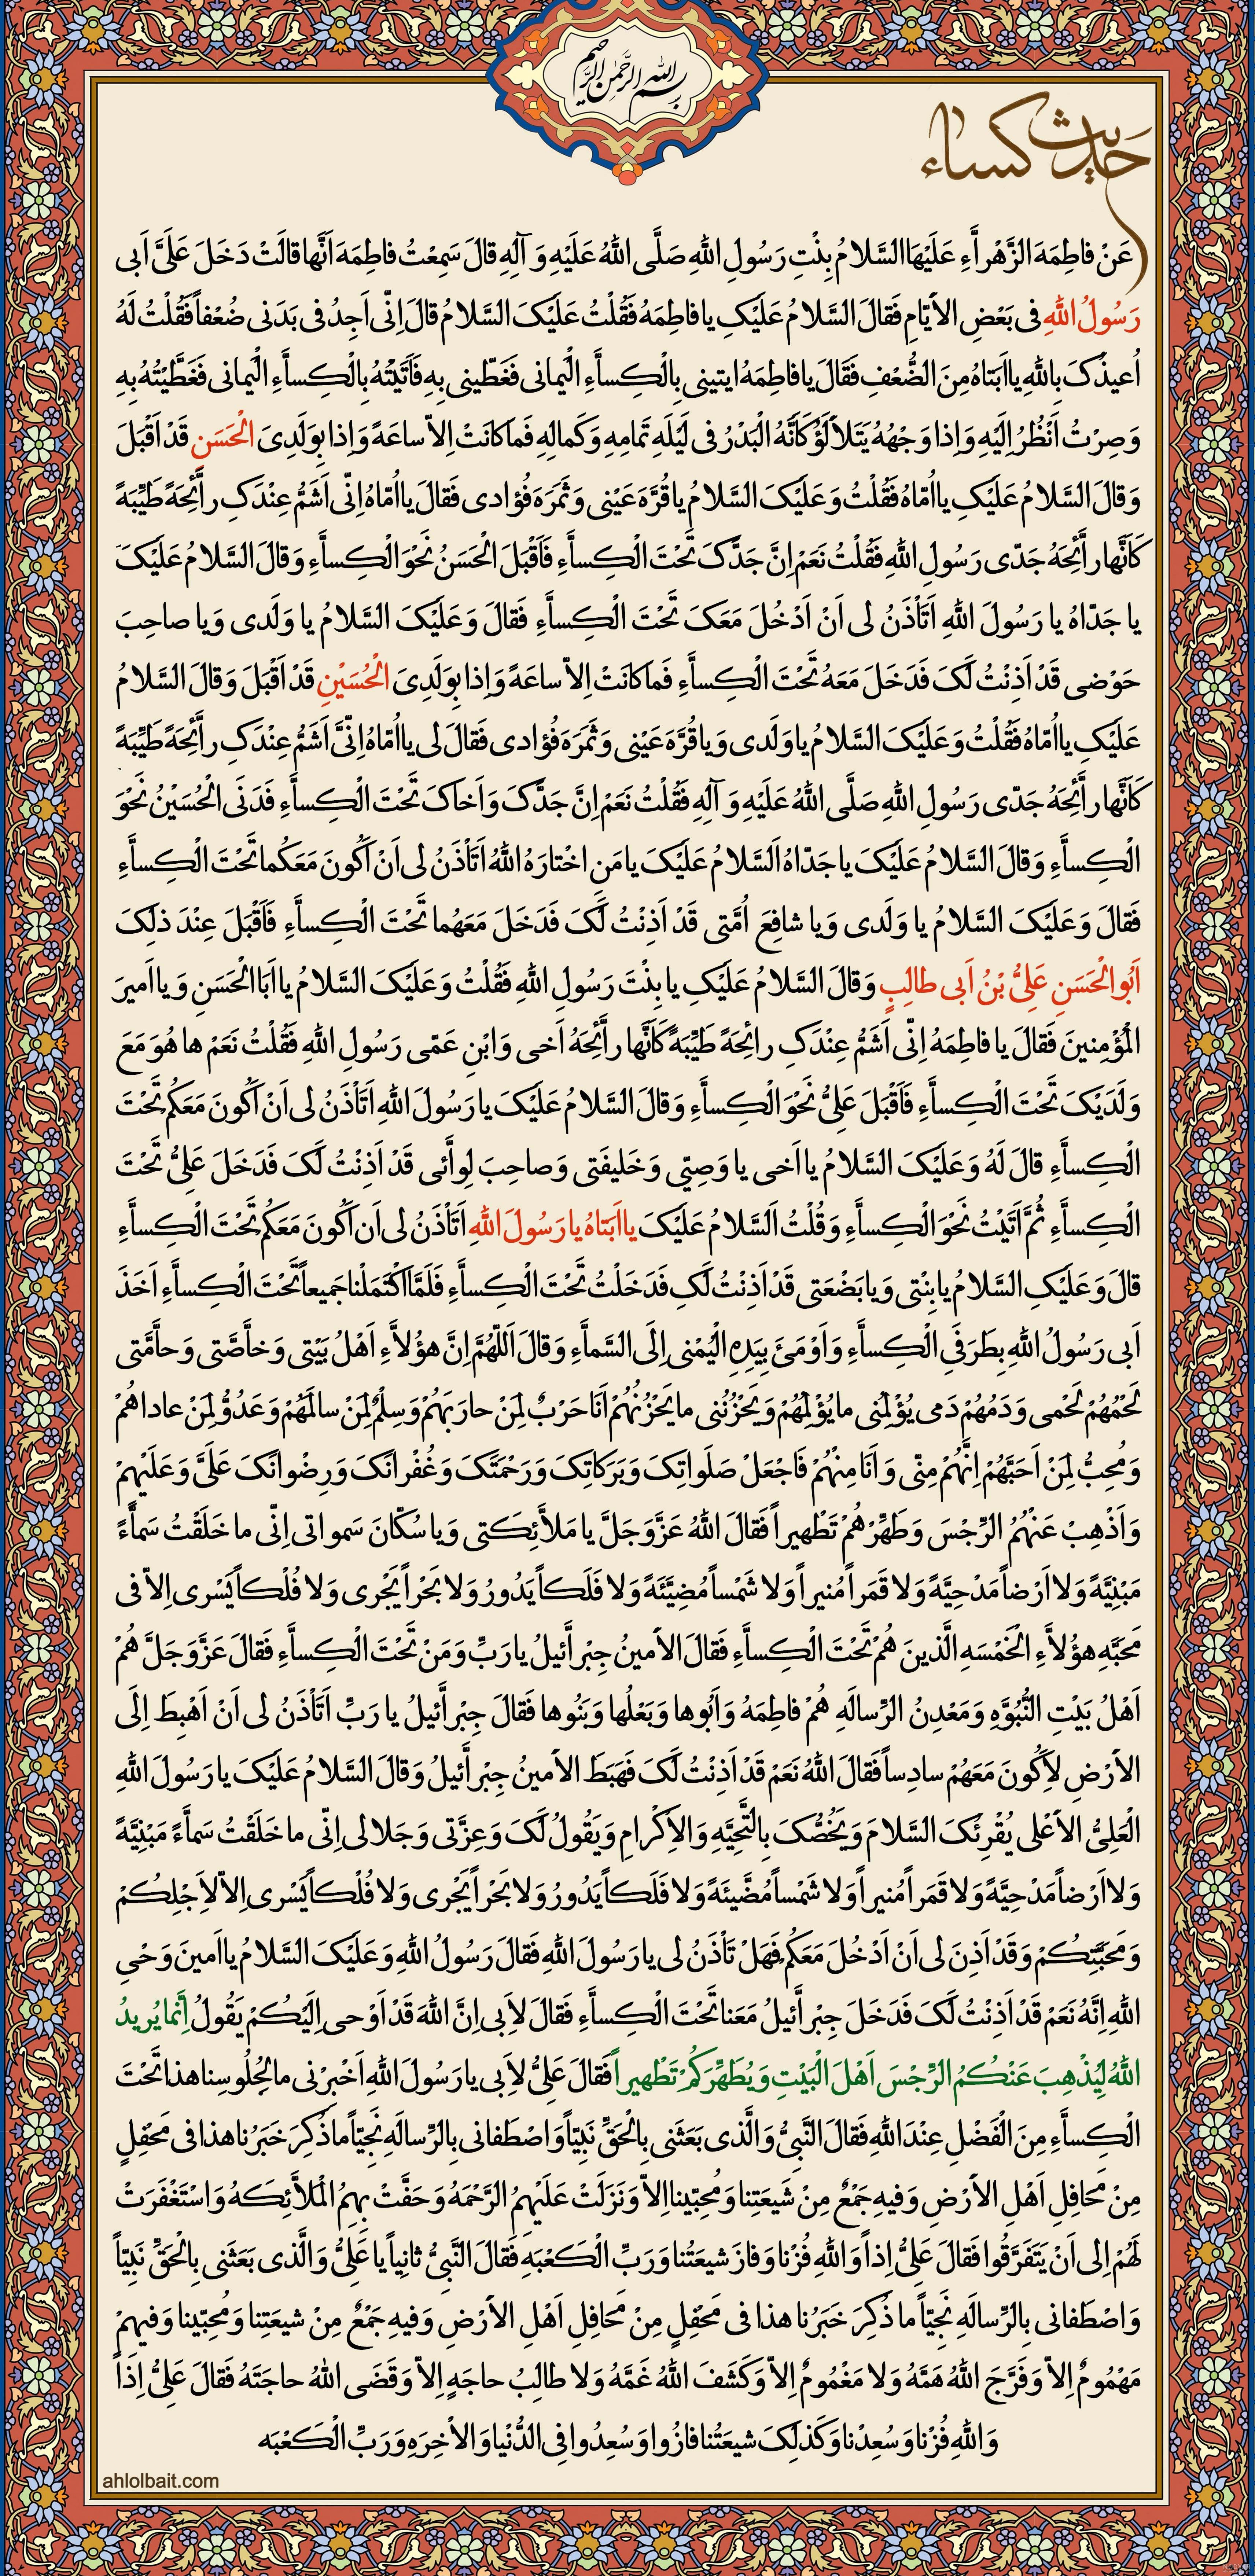 بسم الله الرحمن الرحیم
حدیث کساء
عَنْ فاطِمَهَ الزَّهْرآءِ عَلَیْهَا السَّلامُ بِنْتِ رَسُولِ اللهِ صَلَّی اللهُ عَلَیْهِ وَ آلِهِ قالَ سَمِعْتُ فاطِمَهَ اَنَّها قالَتْ دَخَلَ عَلَیَّ اَبی
رَسُولُ اللهِ فی بَعْضِ الاَیّامِ فَقالَ السَّلامُ عَلَیْکِ یا فاطِمَهُ فَقُلْتُ عَلَیْکَ السَّلامُ قالَ اِنّی اَجِدُ فی بَدَنی ضُعْفاً فَقُلْتُ لَهُ
اُعیذُکَ بِاللهِ یا اَبَتاهُ مِنَ الضُّعْفِ فَقَالَ یا فاطِمَهُ ایتینی بِالْکِسآءِ الْیَمانی فَغَطّینی بِهِ فَاَتَیْتُهُ بِالْکِسآءِ الْیَمانی فَغَطَّیْتُهُ بِهِ
وَ صِرْتُ اَنْظُرُ اِلَیْهِ وَ اِذا وَجْهُهُ یَتَلاَلَؤُ کَاَنَّهُ الْبَدْرُ فی لَیْلَهِ تَمامِهِ وَ کَمالِهِ فَما کانَتْ اِلاّ ساعَهً وَ اِذا بِوَلَدِیَ الْحَسَنِ قَدْ اَقْبَلَ
وَ قالَ السَّلامُ عَلَیْکِ یا اُمّاهُ فَقُلْتُ وَ عَلَیْکَ السَّلامُ یا قُرَّهَ عَیْنی وَ ثَمَرَهَ فُؤادی فَقالَ یا اُمّاهُ اِنّی اَشَمُّ عِنْدَکِ رآئِحَهً طَیِّبَهً
کَاَنَّها رآئِحَهُ جَدّی رَسُولِ اللهِ فَقُلْتُ نَعَمْ اِنَّ جَدَّکَ تَحْتَ الْکِسآءِ فَاَقْبَلَ الْحَسَنُ نَحْوَ الْکِسآءِ وَ قالَ السَّلامُ عَلَیْکَ
یا جَدّاهُ یا رَسُولَ اللهِ اَتَأْذَنُ لی اَنْ اَدْخُلَ مَعَکَ تَحْتَ الْکِسآءِ فَقالَ وَ عَلَیْکَ السَّلامُ یا وَلَدی وَ یا صاحِبَ
حَوْضی قَدْ اَذِنْتُ لَکَ فَدَخَلَ مَعَهُ تَحْتَ الْکِسآءِ فَما کانَتْ اِلاّ ساعَهً وَ اِذا بِوَلَدِیَ الْحُسَیْنِ قَدْ اَقْبَلَ وَ قالَ السَّلامُ
عَلَیْکِ یا اُمّاهُ فَقُلْتُ وَ عَلَیْکَ السَّلامُ یا وَلَدی وَ یا قُرَّهَ عَیْنی وَ ثَمَرَهَ فُؤادی فَقالَ لی یا اُمّاهُ اِنّیَ اَشَمُّ عِنْدَکِ رآئِحَهً طَیِّبَهً
کَاَنَّها رآئِحَهُ جَدّی رَسُولِ اللهِ صَلَّی اللهُ عَلَیْهِ وَ آلِهِ فَقُلْتُ نَعَمْ اِنَّ جَدَّکَ وَ اَخاکَ تَحْتَ الْکِسآءِ فَدَنَی الْحُسَیْنُ نَحْوَ
الْکِسآءِ وَ قالَ السَّلامُ عَلَیْکَ یا جَدّاهُ اَلسَّلامُ عَلَیْکَ یا مَنِ اخْتارَهُ اللهُ اَتَأْذَنُ لی اَنْ اَکُونَ مَعَکُما تَحْتَ الْکِسآءِ
فَقالَ وَ عَلَیْکَ السَّلامُ یا وَلَدی وَ یا شافِعَ اُمَّتی قَدْ اَذِنْتُ لَکَ فَدَخَلَ مَعَهُما تَحْتَ الْکِسآءِ فَاَقْبَلَ عِنْدَ ذلِکَ
اَبُو الْحَسَنِ عَلِیُّ بْنُ اَبی طالِبٍ وَ قالَ السَّلامُ عَلَیْکِ یا بِنْتَ رَسُولِ اللهِ فَقُلْتُ وَ عَلَیْکَ السَّلامُ یا اَبَا الْحَسَنِ وَ یا اَمیرَ
الْمُؤْمِنینَ فَقالَ یا فاطِمَهُ اِنّی اَشَمُّ عِنْدَکِ رائِحَهً طَیِّبَهً کَاَنَّها رآئِحَهُ اَخی وَ ابْنِ عَمّی رَسُولِ اللهِ فَقُلْتُ نَعَمْ ها هُوَ مَعَ
وَلَدَیْکَ تَحْتَ الْکِسآءِ فَاَقْبَلَ عَلِیٌّ نَحْوَ الْکِسآءِ وَ قالَ السَّلامُ عَلَیْکَ یا رَسُولَ اللهِ اَتَأْذَنُ لی اَنْ اَکُونَ مَعَکُمْ تَحْتَ
الْکِسآءِ قالَ لَهُ وَ عَلَیْکَ السَّلامُ یا اَخی یا وَصِیّی وَ خَلیفَتی وَ صاحِبَ لِوآئی قَدْ اَذِنْتُ لَکَ فَدَخَلَ عَلِیٌّ تَحْتَ
الْکِسآءِ ثُمَّ اَتَیْتُ نَحْوَ الْکِسآءِ وَ قُلْتُ اَلسَّلامُ عَلَیْکَ یا اَبَتاهُ یا رَسُولَ اللهِ اَتَأْذَنُ لی اَن اَکُونَ مَعَکُمْ تَحْتَ الْکِسآءِ
قالَ وَ عَلَیْکِ السَّلامُ یا بِنْتی وَ یا بَضْعَتی قَدْ اَذِنْتُ لَکِ فَدَخَلْتُ تَحْتَ الْکِسآءِ فَلَمَّا اکْتَمَلْنا جَمیعاً تَحْتَ الْکِسآءِ اَخَذَ
اَبی رَسُولُ اللهِ بِطَرَفَیِ الْکِسآءِ وَ اَوْمَئَ بِیَدِهِ الْیُمْنی اِلَی السَّماءِ وَ قالَ اَللّهُمَّ اِنَّ هؤُلآءِ اَهْلُ بَیْتی وَ خآصَّتی وَ حآمَّتی
لَحْمُهُمْ لَحْمی وَ دَمُهُمْ دَمی یُؤْلِمُنی ما یُؤْلِمُهُمْ وَ یَحْزُنُنی ما یَحْزُنُهُمْ اَنَا حَرْبٌ لِمَنْ حارَبَهُمْ وَ سِلْمٌ لِمَنْ سالَمَهُمْ وَ عَدُوٌّ لِمَنْ عاداهُمْ
وَ مُحِبٌّ لِمَنْ اَحَبَّهُمْ اِنَّهُمْ مِنّی وَ اَنَا مِنْهُمْ فَاجْعَلْ صَلَواتِکَ وَ بَرَکاتِکَ وَ رَحْمَتَکَ وَ غُفْرانَکَ وَ رِضْوانَکَ عَلَیَّ وَ عَلَیْهِمْ
وَ اَذْهِبْ عَنْهُمُ الرِّجْسَ وَ طَهِّرْهُمْ تَطْهیراً فَقالَ اللهُ عَزَّ وَ جَلَّ یا مَلآئِکَتی وَ یا سُکّانَ سَمواتی اِنّی ما خَلَقْتُ سَمآءً
مَبْنِیَّهً وَ لا اَرْضاً مَدْحِیَّهً وَ لا قَمَراً مُنیراً وَ لا شَمْساً مُضِیَّئَهً وَ لا فَلَکاً یَدُورُ وَ لا بَحْراً یَجْری وَ لا فُلْکاً یَسْری اِلاّ فی
مَحَبَّهِ هؤُلآءِ الْخَمْسَهِ الَّذینَ هُمْ تَحْتَ الْکِسآءِ فَقالَ الاَمینُ جِبْرآئیلُ یا رَبِّ وَ مَنْ تَحْتَ الْکِسآءِ فَقالَ عَزَّ وَ جَلَّ هُمْ
اَهْلُ بَیْتِ النُّبُوَّهِ وَ مَعْدِنُ الرِّسالَهِ هُمْ فاطِمَهُ وَ اَبُوها وَ بَعْلُها وَ بَنُوها فَقالَ جِبْرآئیلُ یا رَبِّ اَتَأْذَنُ لی اَنْ اَهْبِطَ اِلَی
الاَرْضِ لاَِکُونَ مَعَهُمْ سادِساً فَقالَ اللهُ نَعَمْ قَدْ اَذِنْتُ لَکَ فَهَبَطَ الاَمینُ جِبْرآئیلُ وَ قالَ السَّلامُ عَلَیْکَ یا رَسُولَ اللهِ
الْعَلِیُّ الاَعْلی یُقْرِئُکَ السَّلامَ وَ یَخُصُّکَ بِالتَّحِیَّهِ وَ الاِکْرامِ وَ یَقُولُ لَکَ وَ عِزَّتی وَ جَلالی اِنّی ما خَلَقْتُ سَمآءً مَبْنِیَّهً
وَ لا اَرْضاً مَدْحِیَّهً وَ لا قَمَراً مُنیراً وَ لا شَمْساً مُضَّیئَهً وَ لا فَلَکاً یَدُورُ وَ لا بَحْراً یَجْری وَ لا فُلْکاً یَسْری اِلاّ لاَِجْلِکُمْ
وَ مَحَبَّتِکُمْ وَ قَدْ اَذِنَ لی اَنْ اَدْخُلَ مَعَکُمْ فَهَلْ تَأْذَنُ لی یا رَسُولَ اللهِ فَقالَ رَسُولُ اللهِ وَ عَلَیْکَ السَّلامُ یا اَمینَ وَحْیِ
اللهِ اِنَّهُ نَعَمْ قَدْ اَذِنْتُ لَکَ فَدَخَلَ جِبْرآئیلُ مَعَنا تَحْتَ الْکِسآءِ فَقالَ لاَِبی اِنَّ اللهَ قَدْ اَوْحی اِلَیْکُمْ یَقُولُ اِنَّما یُریدُ
اللهُ لِیُذْهِبَ عَنْکُمُ الرِّجْسَ اَهْلَ الْبَیْتِ وَ یُطَهِّرَکُمْ تَطْهیراً فَقالَ عَلِیٌّ لاَِبی یا رَسُولَ اللهِ اَخْبِرْنی ما لِجُلُوسِنا هذا تَحْتَ
الْکِسآءِ مِنَ الْفَضْلِ عِنْدَ اللهِ فَقالَ النَّبِیُّ وَ الَّذی بَعَثَنی بِالْحَقِّ نَبِیّاً وَ اصْطَفانی بِالرِّسالَهِ نَجِیّاً ما ذُکِرَ خَبَرُنا هذا فی مَحْفِلٍ
مِنْ مَحافِلِ اَهْلِ الاَرْضِ وَ فیهِ جَمْعٌ مِنْ شیعَتِنا وَ مُحِبّینا اِلاّ وَ نَزَلَتْ عَلَیْهِمُ الرَّحْمَهُ وَ حَفَّتْ بِهِمُ الْمَلآئِکَهُ وَ اسْتَغْفَرَتْ
لَهُمْ اِلی اَنْ یَتَفَرَّقُوا فَقالَ عَلِیٌّ اِذاً وَ اللهِ فُزْنا وَ فازَ شیعَتُنا وَ رَبِّ الْکَعْبَهِ فَقالَ النَّبِیُّ ثانِیاً یا عَلِیُّ وَ الَّذی بَعَثَنی بِالْحَقِّ نَبِیّاً
وَ اصْطَفانی بِالرِّسالَهِ نَجِیّاً ما ذُکِرَ خَبَرُنا هذا فی مَحْفِلٍ مِنْ مَحافِلِ اَهْلِ الاَرْضِ وَ فیهِ جَمْعٌ مِنْ شیعَتِنا وَ مُحِبّینا وَ فیهِمْ
مَهْمُومٌ اِلاّ وَ فَرَّجَ اللهُ هَمَّهُ وَ لا مَغْمُومٌ اِلاّ وَ کَشَفَ اللهُ غَمَّهُ وَ لا طالِبُ حاجَهٍ اِلاّ وَ قَضَی اللهُ حاجَتَهُ فَقالَ عَلِیٌّ اِذَاً
وَ اللهِ فُزْنا وَ سُعِدْنا وَ کَذلِکَ شیعَتُنا فازُوا وَ سُعِدُوا فِی الدُّنْیا وَ الاْخِرَهِ وَ رَبِّ الْکَعْبَه
ahlolbait.com